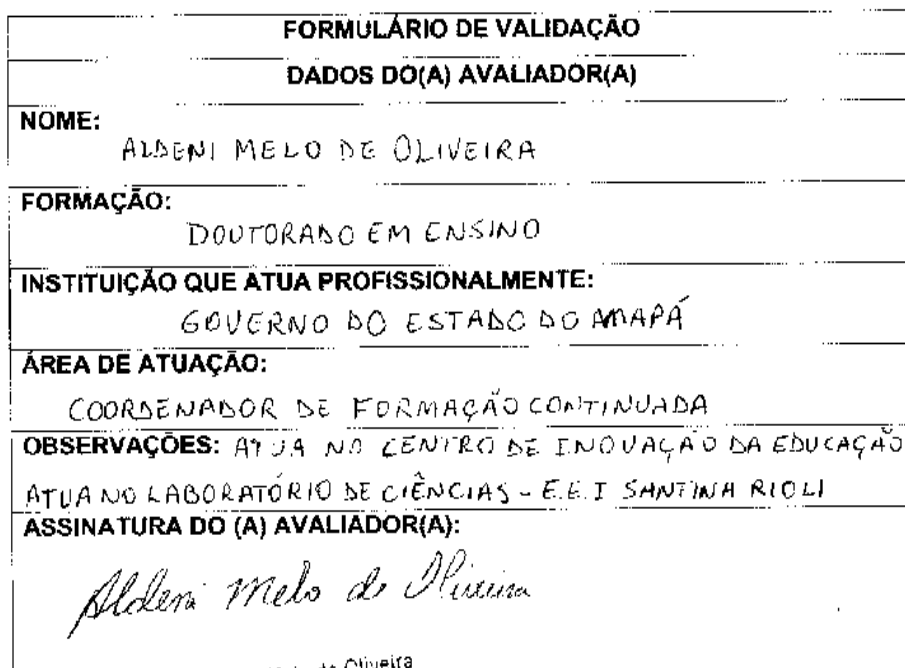 FORMULÁRIO DE VALIDAÇÃO
DADOS DO(A) AVALIADOR(A)
NOME:
ALDENI MELO DE OLIVEIRA
FORMAÇÃO:
DOUTORADO EM ENSINO
INSTITUIÇÃO QUE ATUA PROFISSIONALMENTE:
GOVERNO DO ESTADO DO AMAPÁ
ÁREA DE ATUAÇÃO:
COORDENADOR DE FORMAÇÃO CONTINUADA
OBSERVAÇÕES: ATUA NO CENTRO DE INOVAÇÃO DA EDUCAÇÃO
ATUA NO LABORATÓRIO DE CIÊNCIAS - E.E.I SANTINA RIOLI
ASSINATURA DO (A) AVALIADOR(A):
Aldeni Melo de Oliveira
de Oliveira